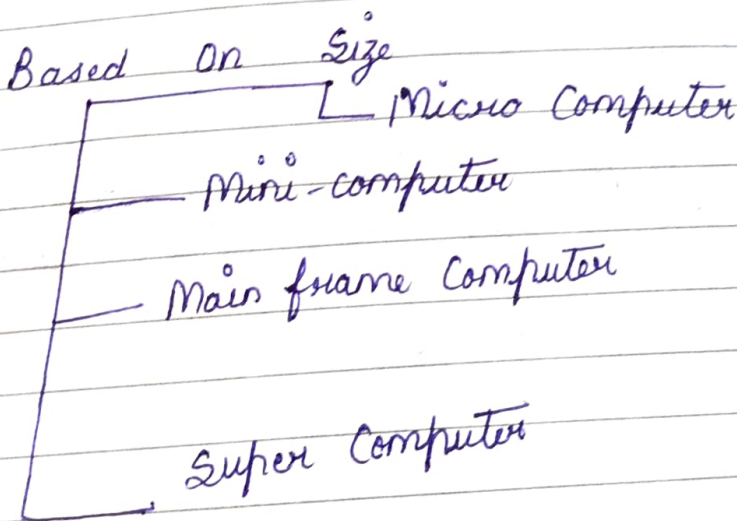 Based On Size
Micro Computer
Mini-computer
Main frame Computer
Super Computer